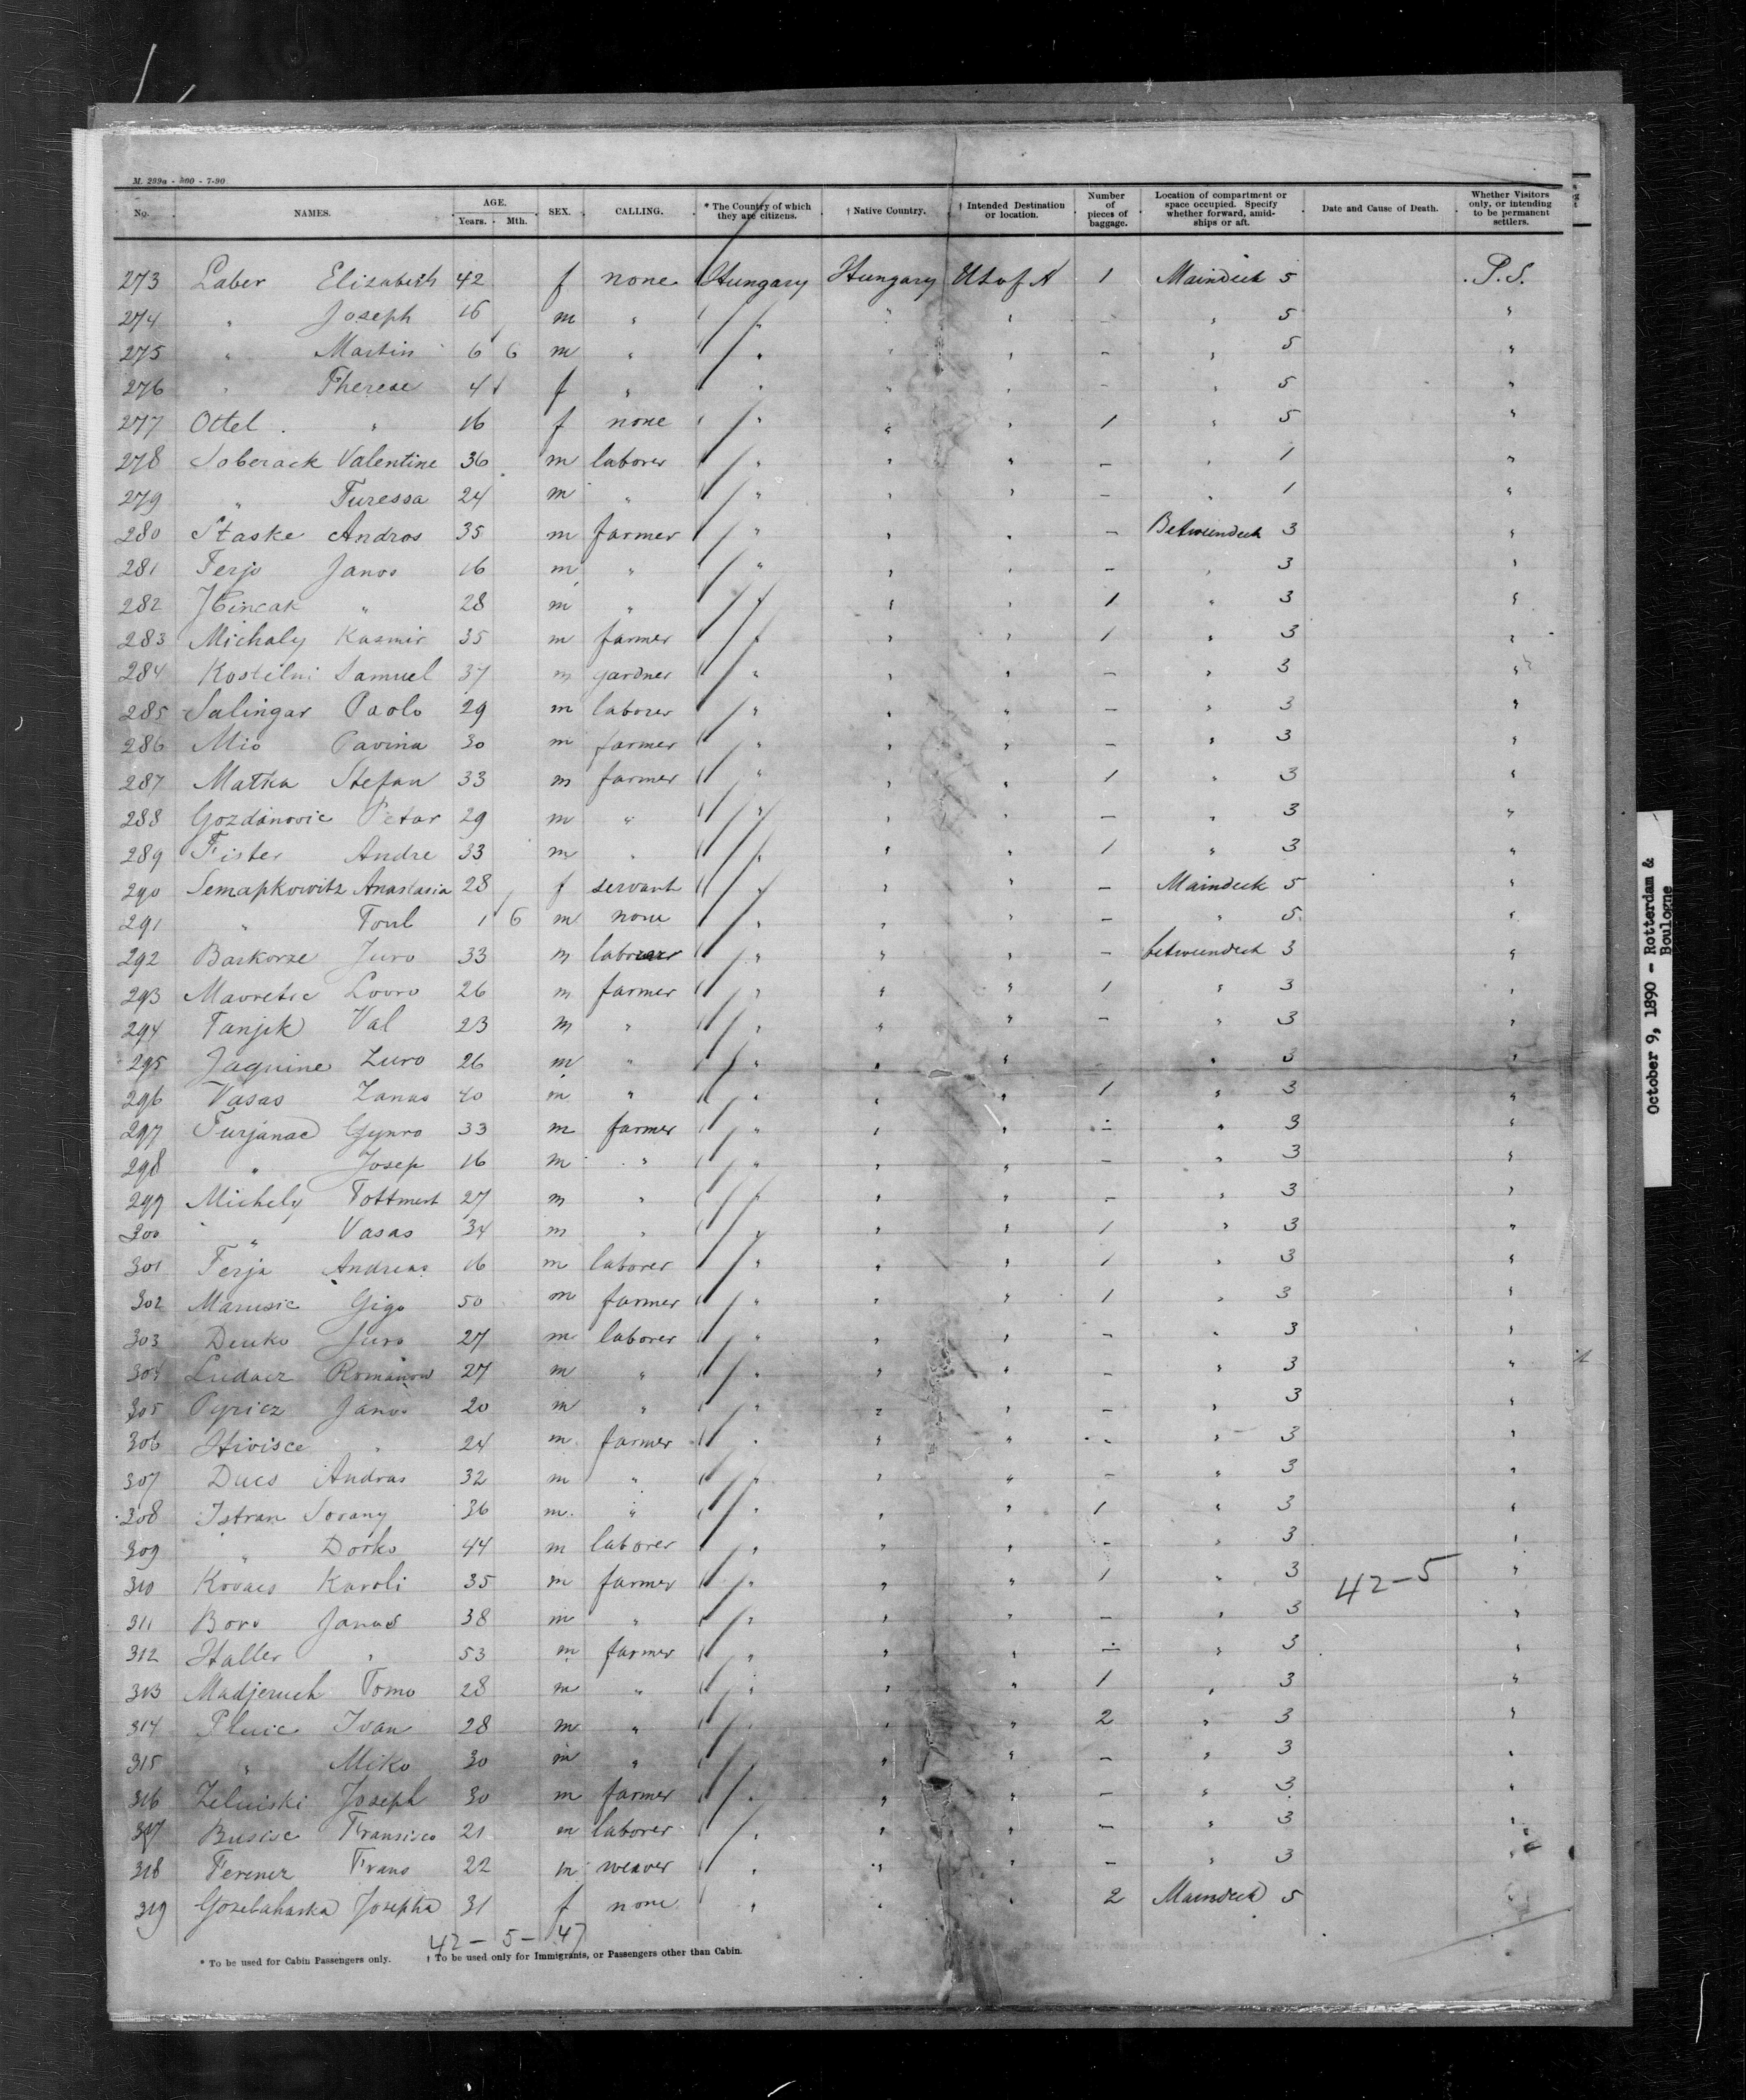 M. 299a - 500 - 7-90
No. NAMES. AGE. Years. Mth. SEX. CALLING. * The Country of which they are citizens. † Native Country. † Intended Destination or location. Number of pieces of baggage. Location of compartment or space occupied. Specify whether forward, amidships or aft. Date and Cause of Death. Whether Visitors only, or intending to be permanent settlers.
273 Laber Elizabeth 42 f none Hungary Hungary U S of A 1 Maindeck 5 P.S.
274 " Joseph 16 m " " " " - " 5 "
275 " Martin 6 6 m " " " " - " 5 "
276 " Therese 4 f " " " " - " 5 "
277 Ottel " 16 f none " " " 1 " 5 "
278 Soberack Valentine 36 m laborer " " " - " 1 "
279 " Turessa 24 m " " " " - " 1 "
280 Staske Andros 35 m farmer " " " - Betweendeck 3 "
281 Ferjo Janos 16 m " " " " - " 3 "
282 Hincak " 28 m " " " " 1 " 3 "
283 Michaly Kasmir 35 m farmer " " " 1 " 3 "
284 Kostelni Samuel 37 m gardner " " " - " 3 "
285 Salingar Paolo 29 m laborer " " " - " 3 "
286 Mio Pavina 30 m farmer " " " - " 3 "
287 Matka Stefan 33 m farmer " " " 1 " 3 "
288 Gozdanovic Petar 29 m " " " " - " 3 "
289 Fister Andre 33 m " " " " 1 " 3 "
290 Semapkowitz Anastasia 28 f servant " " " - Maindeck 5 "
291 " Toul 1 6 m none " " " - " 5 "
292 Baskorze Juro 33 m laborer " " " - betweendeck 3 "
293 Mavretic Lovro 26 m farmer " " " 1 " 3 "
294 Tanjik Val 23 m " " " " - " 3 "
295 Jaguine Zuro 26 m " " " " " 3 "
296 Vasas Zanas 40 m " " " " 1 " 3 "
297 Turjanac Gynro 33 m farmer " " " - " 3 "
298 " Josep 16 m " " " " - " 3 "
299 Michely Tottmest 27 m " " " " - " 3 "
300 " Vasas 34 m " " " " 1 " 3 "
301 Ferja Andreas 16 m laborer " " " 1 " 3 "
302 Marusic Gigo 50 m farmer " " " 1 " 3 "
303 Deuko Juro 27 m laborer " " " - " 3 "
304 Ludacz Romanow 27 m " " " " - " 3 "
305 Pyricz Janos 20 m " " " " - " 3 "
306 Hivisce " 24 m farmer " " " - " 3 "
307 Ducs Andras 32 m " " " " - " 3 "
308 Istran Sovany 36 m " " " " 1 " 3 "
309 " Dorko 44 m laborer " " " - " 3 "
310 Kovacs Karoli 35 m farmer " " " 1 " 3 42-5 "
311 Boro Janos 38 m " " " " - " 3 "
312 Haller " 53 m farmer " " " - " 3 "
313 Madjeruch Tomo 28 m " " " " 1 " 3 "
314 Pluic Ivan 28 m " " " " 2 " 3 "
315 " Miko 30 m " " " " - " 3 "
316 Zeluiski Joseph 30 m farmer " " " - " 3 "
317 Busisc Fransisco 21 m laborer " " " - " 3 "
318 Ferencz Frans 22 m weaver " " " - " 3 "
319 Gozebaharka Josepha 31 f none " " " 2 Maindeck 5
42 - 5 - 47
* To be used for Cabin Passengers only. † To be used only for Immigrants, or Passengers other than Cabin.
October 9, 1890 - Rotterdam &
Boulogne